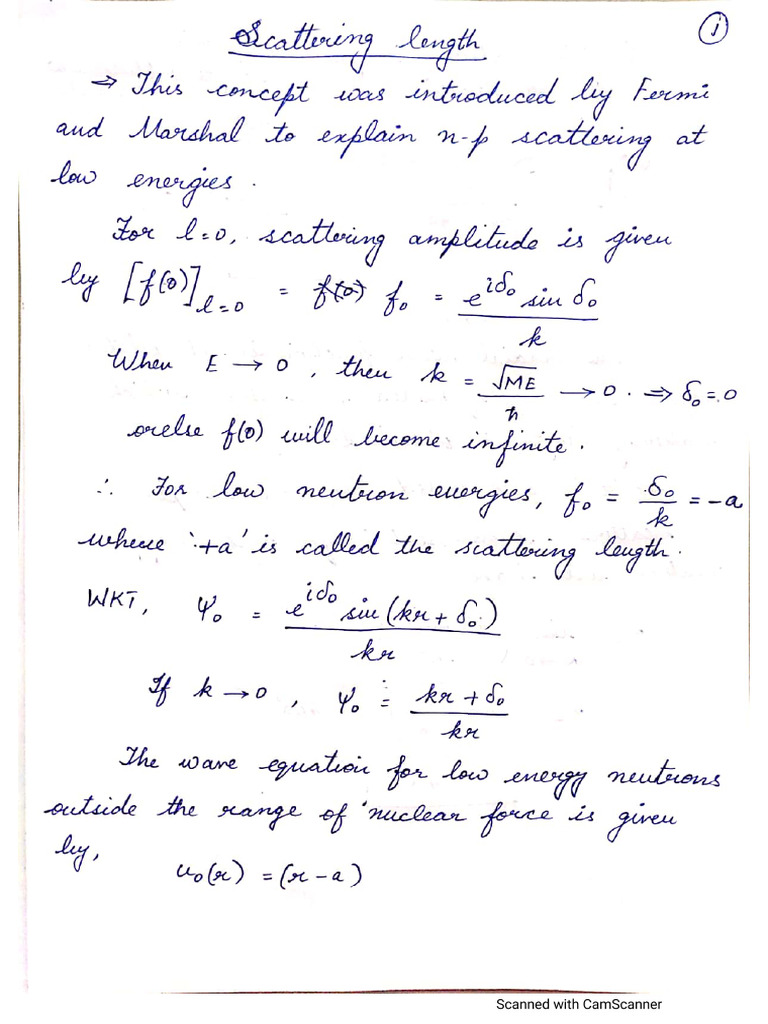 Scattering length
①
⇒ This concept was introduced by Fermi
and Marshal to explain n-p scattering at
low energies.
For l=0, scattering amplitude is given
by [f(θ)]_{l=0} = f₀ = e^{iδ₀} sin δ₀ / k
When E → 0, then k = √ME / ħ → 0. ⇒ δ₀=0
orelse f(θ) will become infinite.
∴ For low neutron energies, f₀ = δ₀/k = -a
where '+a' is called the scattering length.
WKT, Ψ₀ = e^{iδ₀} sin(kr + δ₀) / kr
If k → 0, Ψ₀ = kr + δ₀ / kr
The wave equation for low energy neutrons
outside the range of nuclear force is given
by,
u₀(r) = (r - a)
Scanned with CamScanner